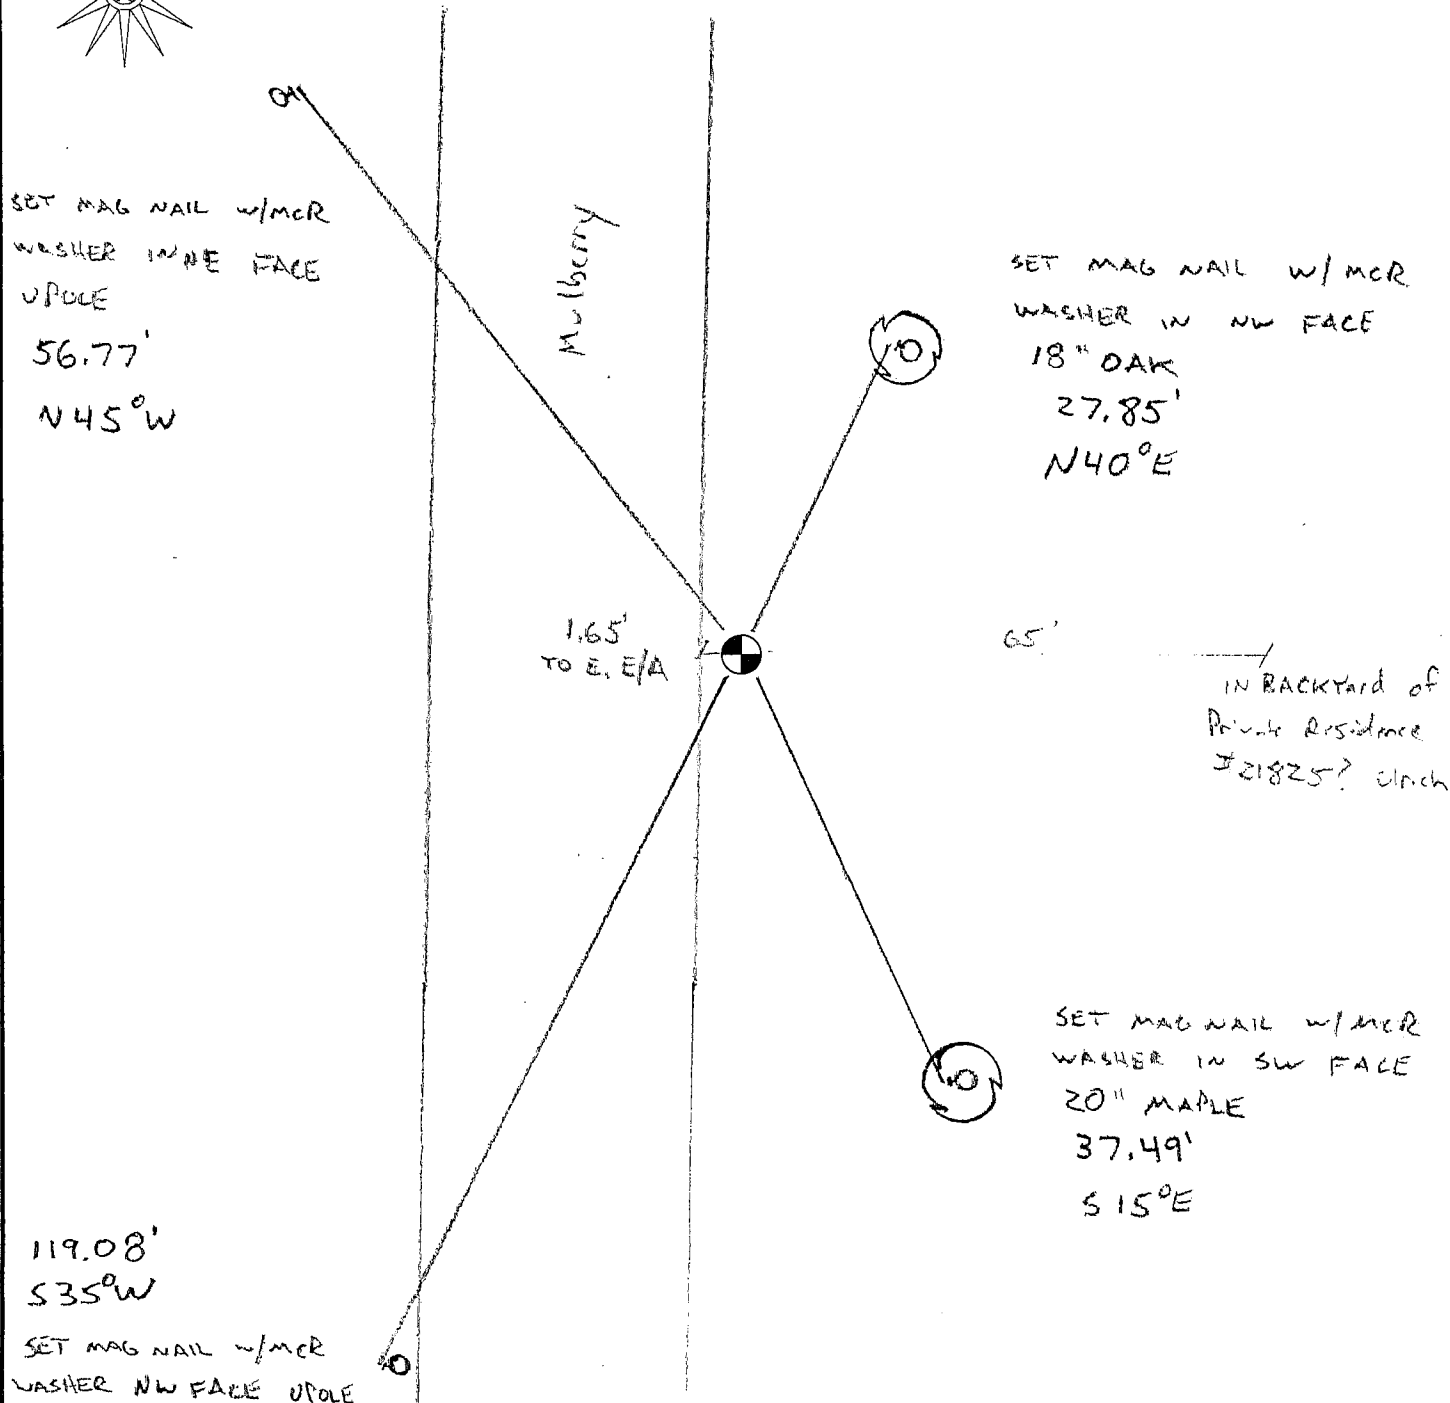 SET MAG NAIL W/MCR
WASHER IN NE FACE
UPOLE
56.77'
N45°W
Mulberry
SET MAG NAIL W/ MCR
WASHER IN NW FACE
18" OAK
27.85'
N40°E
1.65'
TO E. E/A
65'
IN BACKYard of
Private Residence
#21825? Ulrich
SET MAG NAIL W/ MCR
WASHER IN SW FACE
20" MAPLE
37.49'
S 15°E
119.08'
S35°W
SET MAG NAIL W/MCR
WASHER NW FACE UPOLE